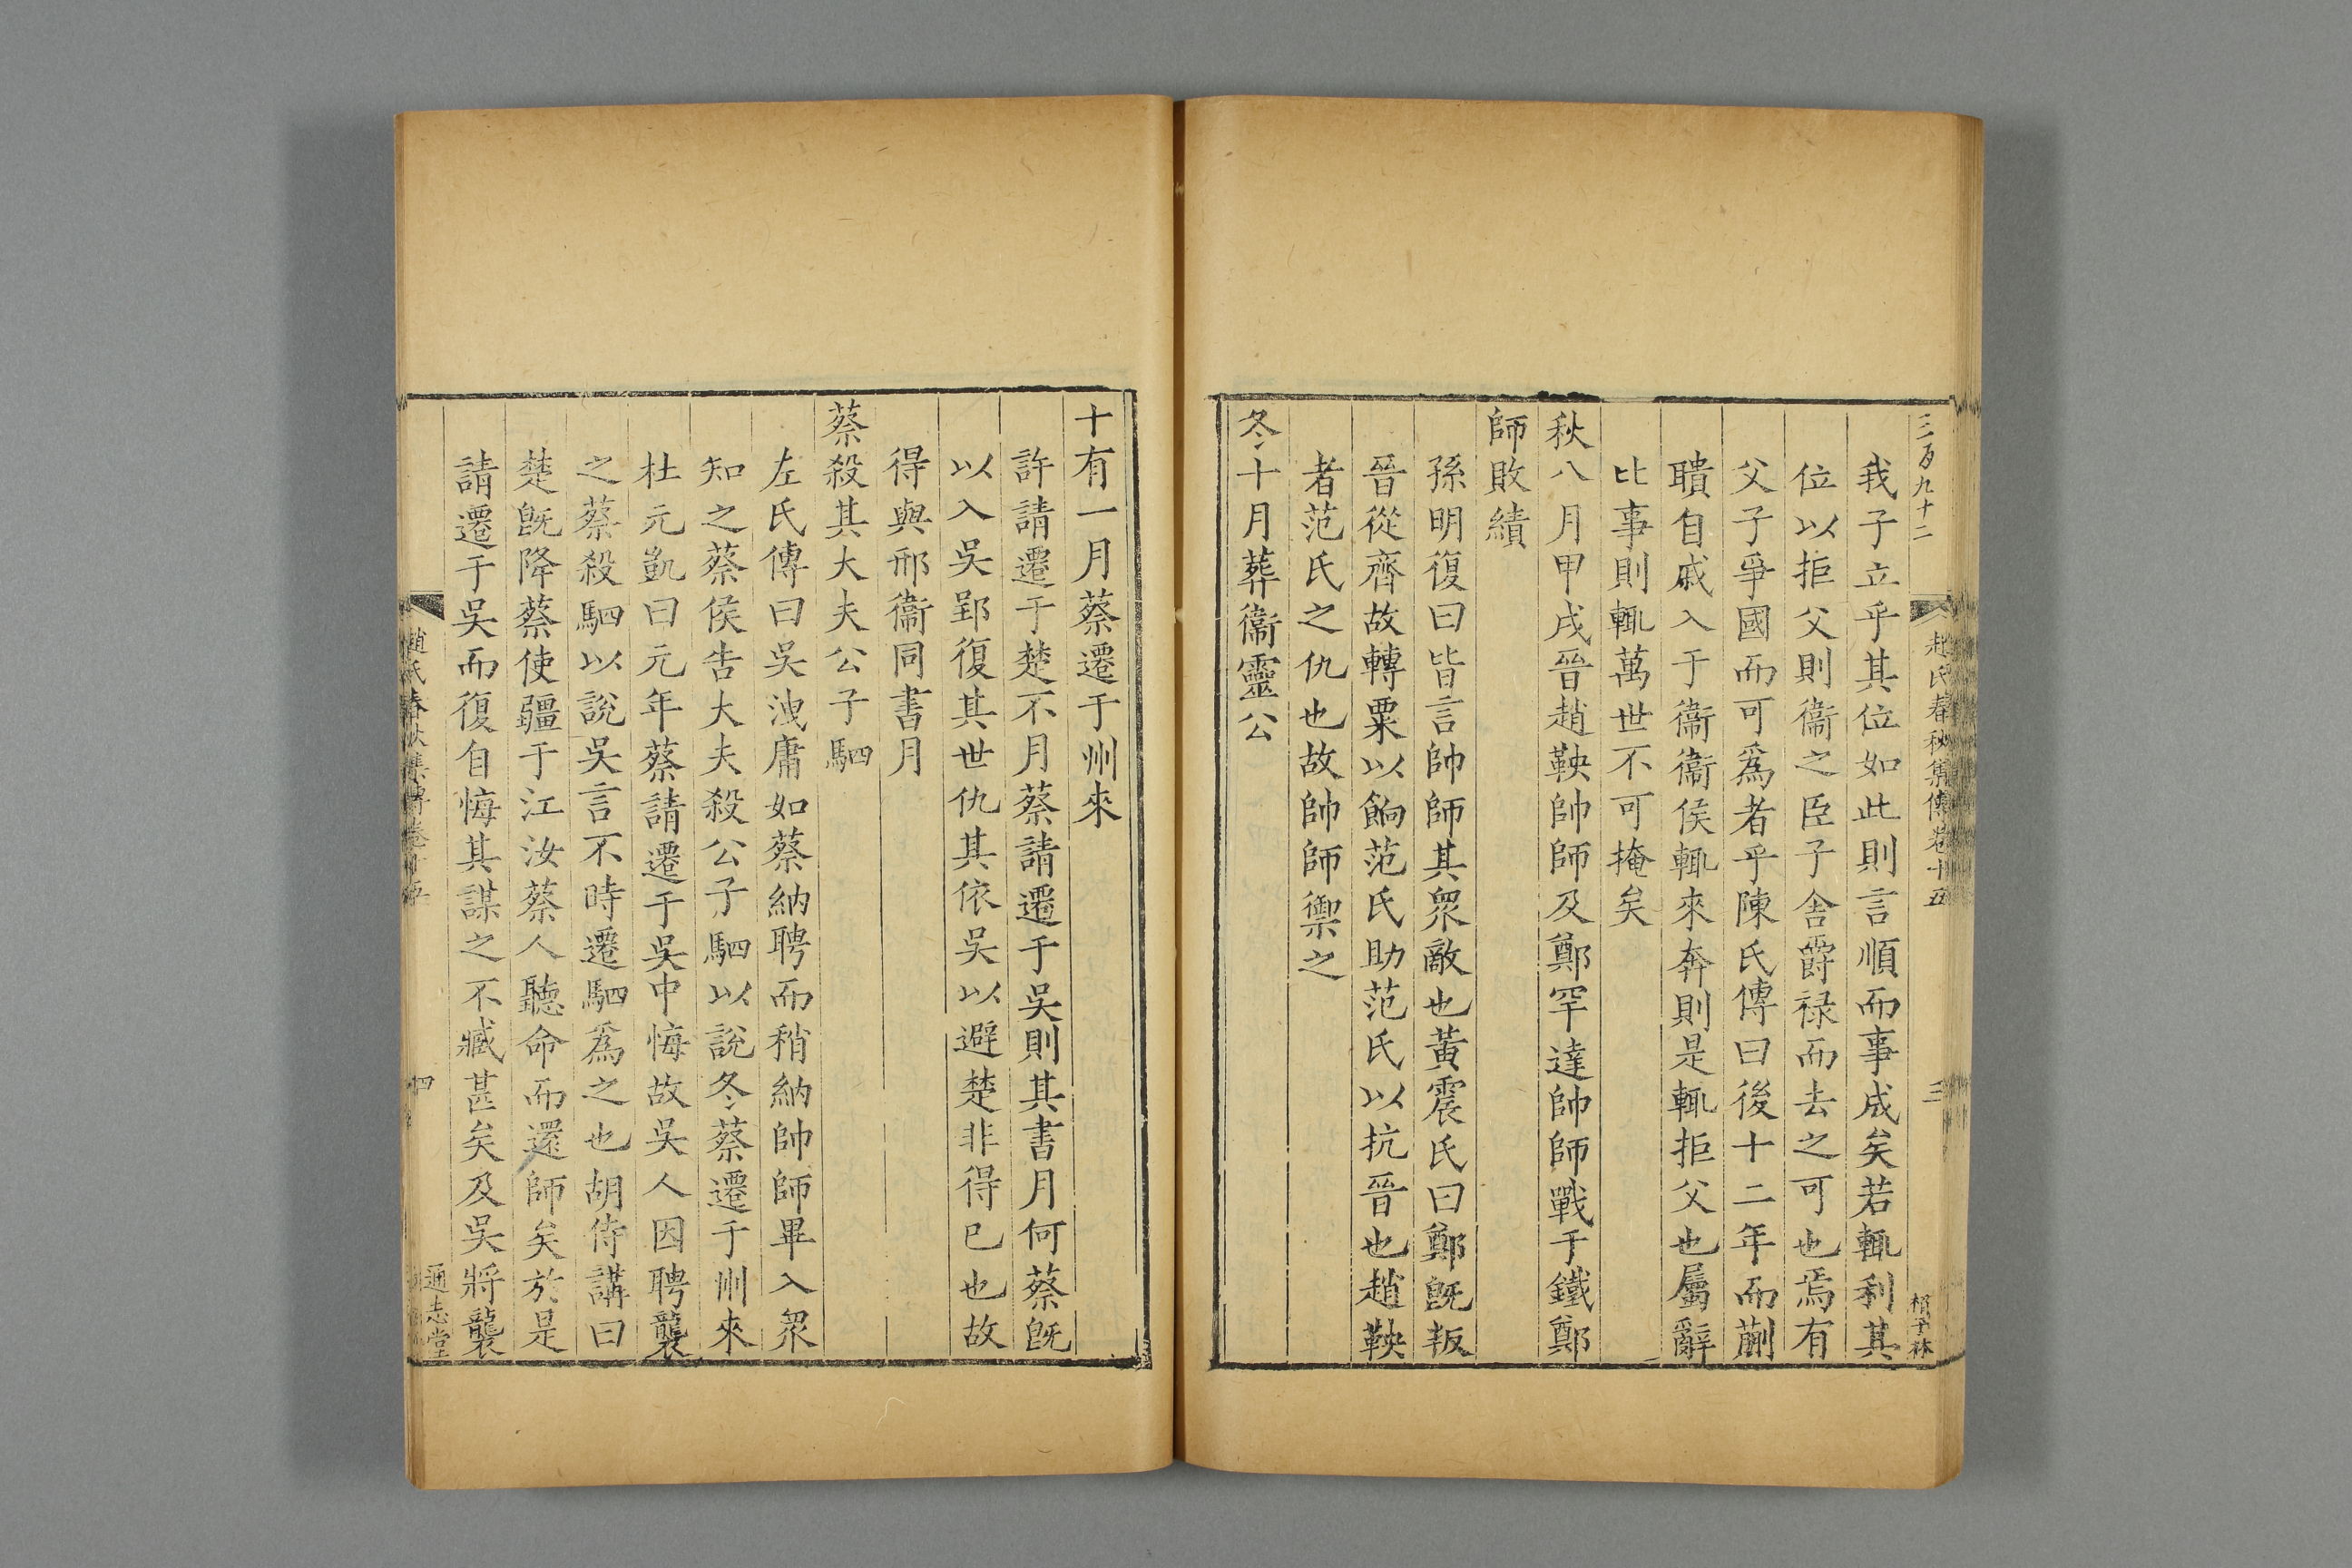 三百九十二
趙氏春秋集傳卷十五
三
我子立乎其位如此則言順而事成矣若輒利其
位以拒父則衞之臣子舍爵禄而去之可也焉有
父子爭國而可爲者乎陳氏傳曰後十二年而蒯
聵自戚入于衞衞侯輒來奔則是輒拒父也屬辭
比事則輒萬世不可掩矣
秋八月甲戌晉趙鞅帥師及鄭罕達帥師戰于鐵鄭
師敗績
孫明復曰皆言帥師其衆敵也黃震氏曰鄭旣叛
晉從齊故轉粟以餉范氏助范氏以抗晉也趙鞅
者范氏之仇也故帥師禦之
冬十月葬衞靈公
十有一月蔡遷于州來
許請遷于楚不月蔡請遷于吳則其書月何蔡旣
以入吳郢復其世仇其依吳以避楚非得已也故
得與邢衞同書月
蔡殺其大夫公子駟
左氏傳曰吳洩庸如蔡納聘而稍納帥師畢入衆
知之蔡侯告大夫殺公子駟以說冬蔡遷于州來
杜元凱曰元年蔡請遷于吳中悔故吳人因聘襲
之蔡殺駟以說吳言不時遷駟爲之也胡侍講曰
楚旣降蔡使疆于江汝蔡人聽命而還師矣於是
請遷于吳而復自悔其謀之不臧甚矣及吳將襲
趙氏春秋集傳卷十五
四
通志堂